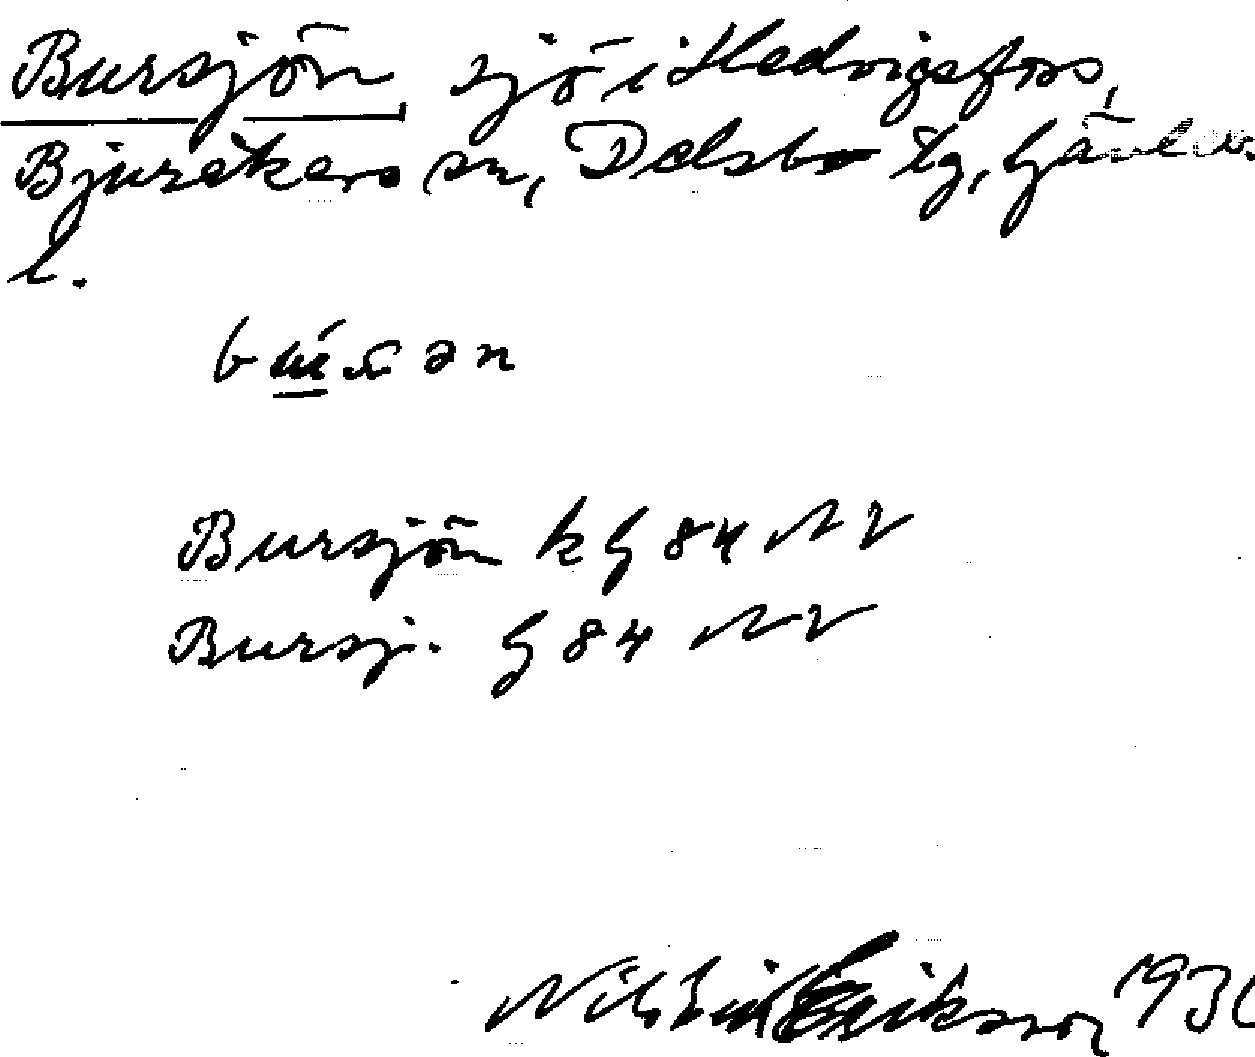 Bursjön, sjö i Hedvigsfors,
Bjuråkers sn, Delsbo tg, Gävleb.
l.
Bursjön k G 84 NV
Bursj. G 84 NV
Nils Erik Eriksson 193